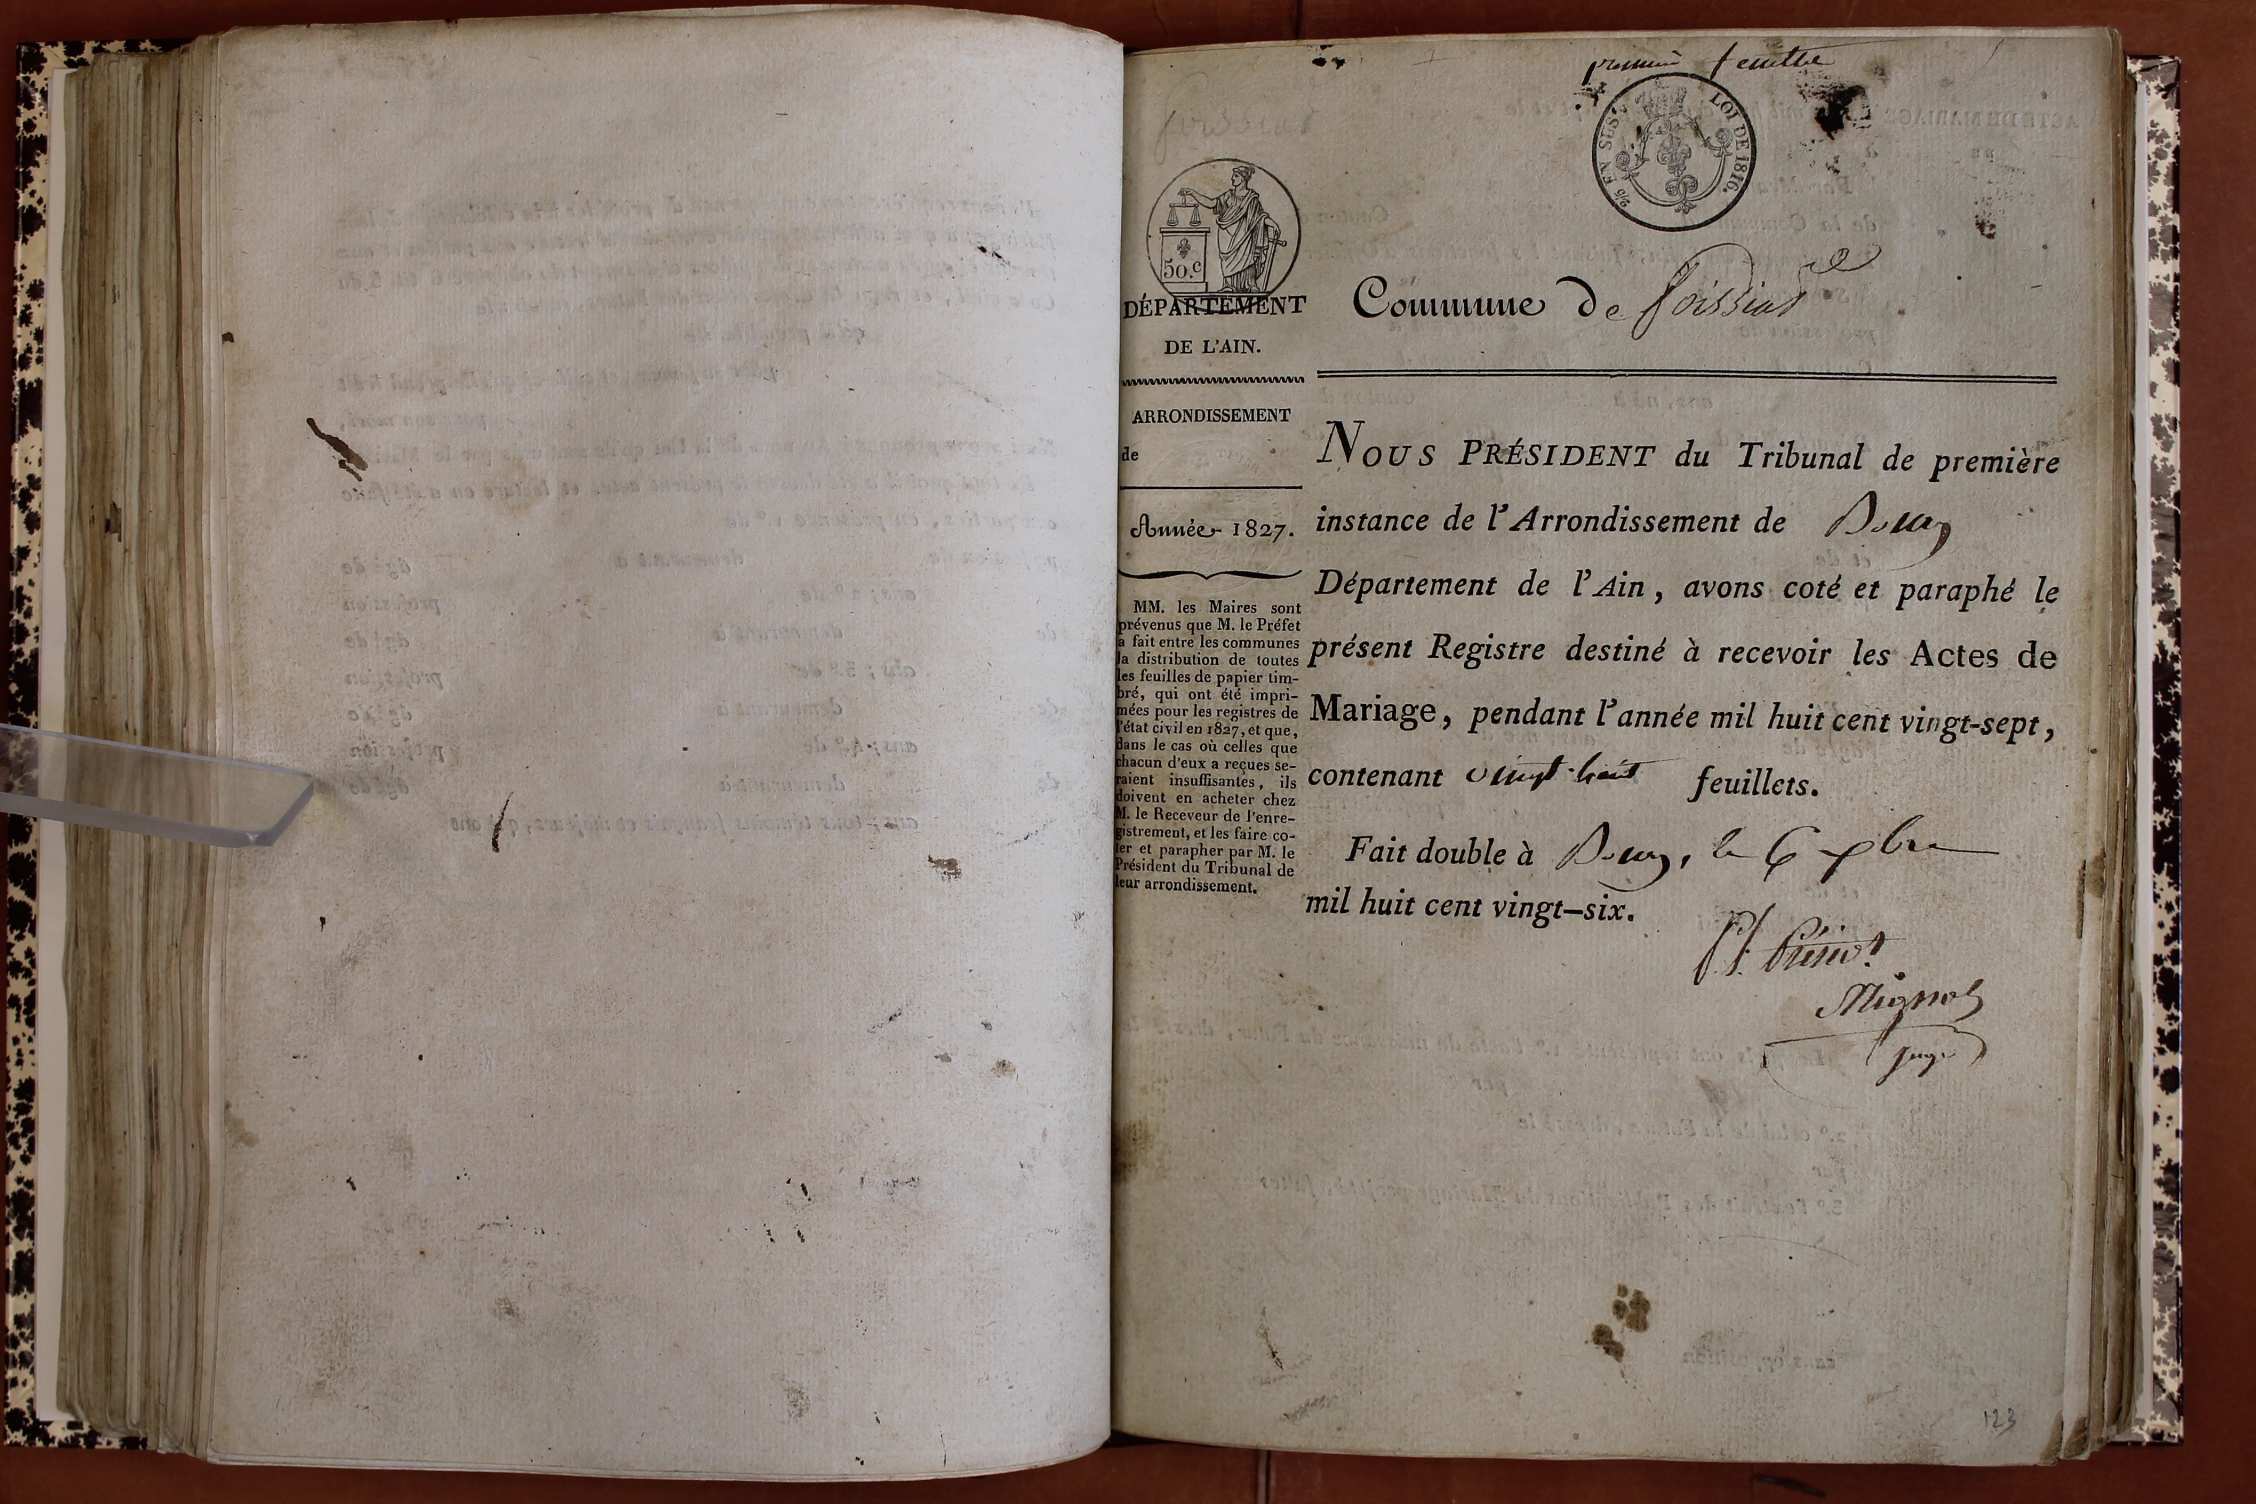 première feuille
LOI DE 1816.
50.c
DÉPARTEMENT
DE L'AIN.
Commune de Foissiat
ARRONDISSEMENT
de
Année 1827.
MM. les Maires sont
prévenus que M. le Préfet
a fait entre les communes
la distribution de toutes
les feuilles de papier tim-
bré, qui ont été impri-
mées pour les registres de
l'état civil en 1827, et que,
dans le cas où celles que
chacun d'eux a reçues se-
raient insuffisantes, ils
doivent en acheter chez
M. le Receveur de l'enre-
gistrement, et les faire co-
ter et parapher par M. le
Président du Tribunal de
leur arrondissement.
NOUS PRÉSIDENT du Tribunal de première
instance de l'Arrondissement de Bourg
Département de l'Ain, avons coté et paraphé le
présent Registre destiné à recevoir les Actes de
Mariage, pendant l'année mil huit cent vingt-sept,
contenant vingt-huit feuillets.
Fait double à Bourg, le 6 xbre
mil huit cent vingt-six.
juge
123